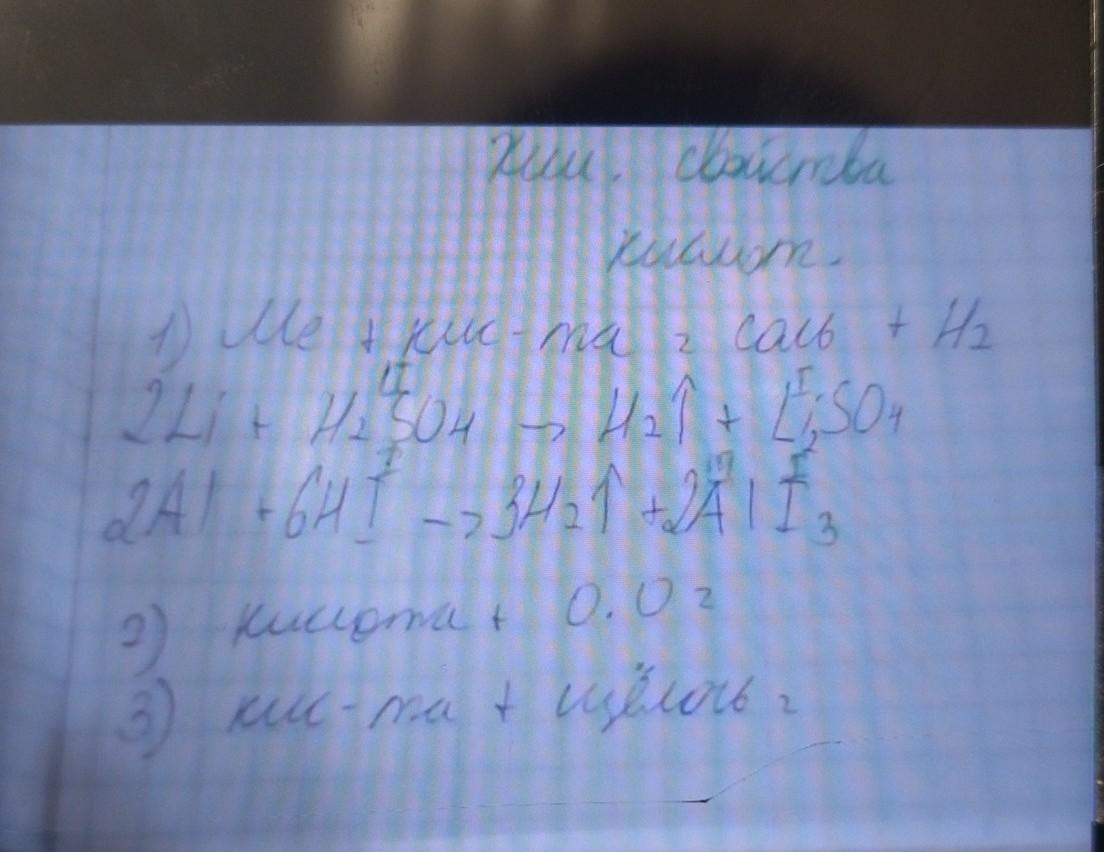 Хим. свойства
кислот.
1) Ме + кис-та = соль + H₂
2Li + H₂SO₄ → H₂↑ + Li₂SO₄
2Al + 6HI → 3H₂↑ + 2AlI₃
2) кислота + О.О =
3) кис-та + щёлочь =